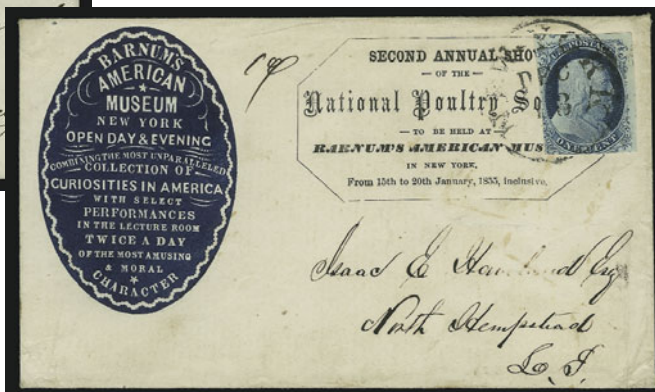 BARNUM'S
AMERICAN
MUSEUM
NEW YORK
OPEN DAY & EVENING
COMBINING THE MOST UNPARALLELED
COLLECTION OF
CURIOSITIES IN AMERICA
WITH SELECT
PERFORMANCES
IN THE LECTURE ROOM
TWICE A DAY
OF THE MOST AMUSING
& MORAL
CHARACTER
SECOND ANNUAL SHO
— OF THE —
National Poultry So
— TO BE HELD AT
BARNUM'S AMERICAN MUS
IN NEW YORK,
From 15th to 20th January, 1855, inclusive.
POSTAGE
ONE CENT
DEC
Isaac E Esq
North Hempstead
L. I.